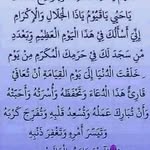 يَاحَيُّ يَاقَيُّومُ يَاذَا الْجَلَالِ وَالْإِكْرَامِ
إِنِّي أَسْأَلُكَ فِي هَذَا الْيَوْمِ الْعَظِيمِ وَبِعَدَدِ
مَنْ سَجَدَ لَكَ فِي حَرَمِكَ الْمُكَرَّمِ مِنْ يَوْمِ
خَلَقْتَ الدُّنْيَا إِلَى يَوْمِ الْقِيَامَةِ أَنْ تُعَافِيَ
قَارِئَ هَذَا الدُّعَاءِ وَتَحْفَظَهُ وَأُسْرَتَهُ وَأَحِبَّتَهُ
وَأَنْ تُبَارِكَ عَمَلَهُ وَتُسْعِدَ قَلْبَهُ وَتُفَرِّجَ كَرْبَهُ
وَتُيَسِّرَ أَمْرَهُ وَتَغْفِرَ ذَنْبَهُ